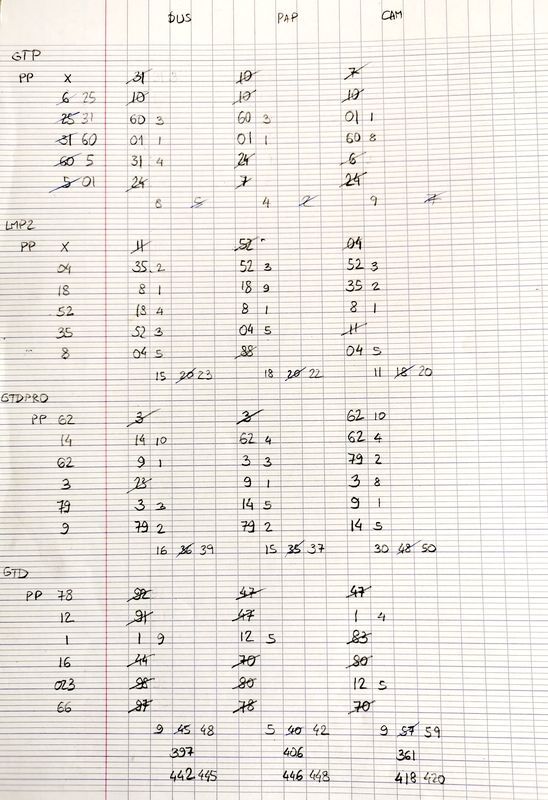 DUS PAP CAM
GTP
PP X 31 10 7
6 25 10 10 10
25 31 60 3 60 3 01 1
31 60 01 1 01 1 60 8
60 5 31 4 24 6
5 01 24 7 24
8 4 9 7
LMP2
PP X 11 52 04
04 35 2 52 3 52 3
18 8 1 18 9 35 2
52 18 4 8 1 8 1
35 52 3 04 5 11
8 04 5 88 04 5
15 20 23 18 20 22 11 18 20
GTDPRO
PP 62 3 3 62 10
14 14 10 62 4 62 4
62 9 1 3 3 79 2
3 23 9 1 3 8
79 3 3 14 5 9 1
9 79 2 79 2 14 5
16 36 39 15 35 37 30 48 50
GTD
PP 78 92 47 47
12 91 47 1 4
1 1 9 12 5 83
16 44 70 80
023 98 80 12 5
66 87 78 70
9 45 48 5 40 42 9 57 59
397 406 361
442 445 446 448 418 420